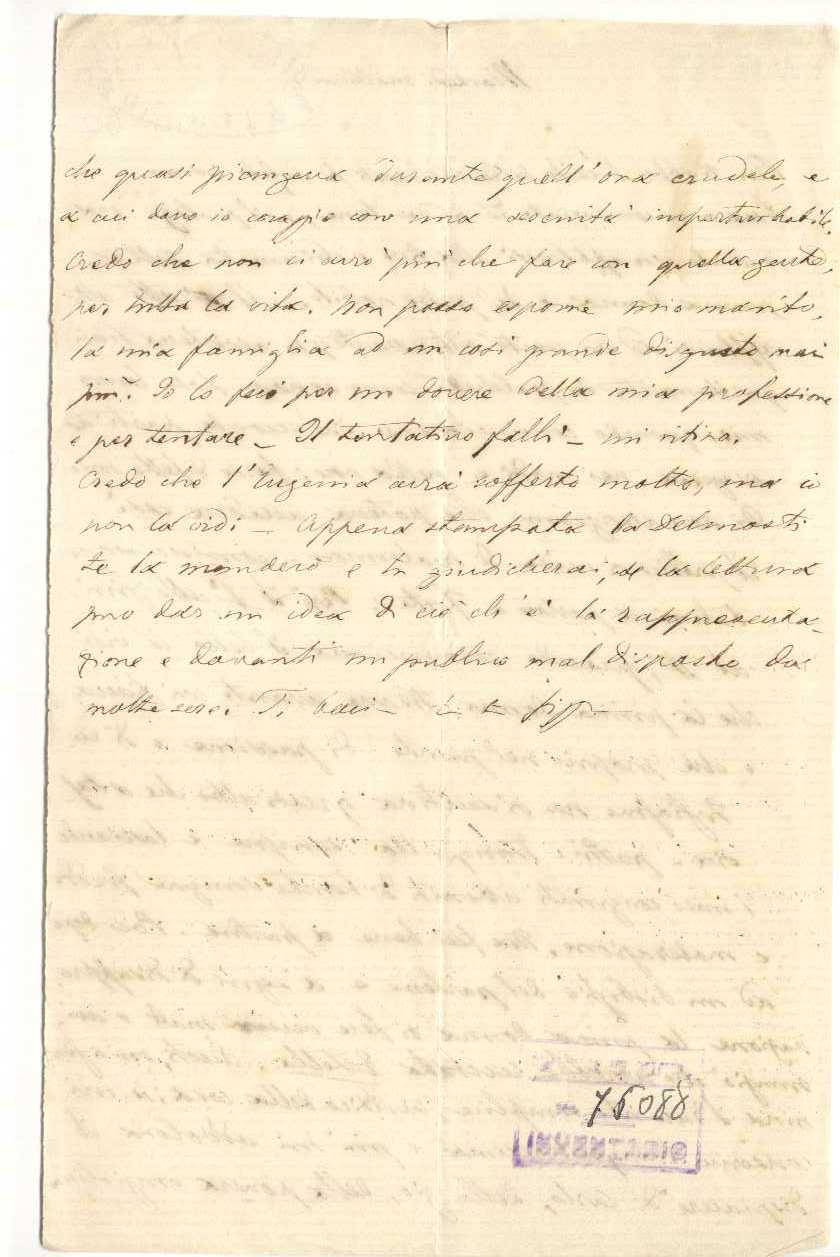 che quasi piangeva durante quell'ora crudele, e
a cui davo io coragio con una serenità imperturbabile.
Credo che non ci avrò più che fare con quella gente,
per tutta la vita. Non posso esporre mio marito,
la mia famiglia ad un così grande disgusto mai
più. Io lo feci per un dovere della mia professione
e per tentare – Il tentativo fallì – mi ritiro.
Credo che l'Eugenia avrà sofferto molto, ma io
non la vidi – Appena stampata la
te la manderò e tu giudicherai, se la lettura
può dar un'idea di ciò ch'è la rappresenta-
zione e davanti un publico mal disposto da
molte sere. Ti baci–
75088